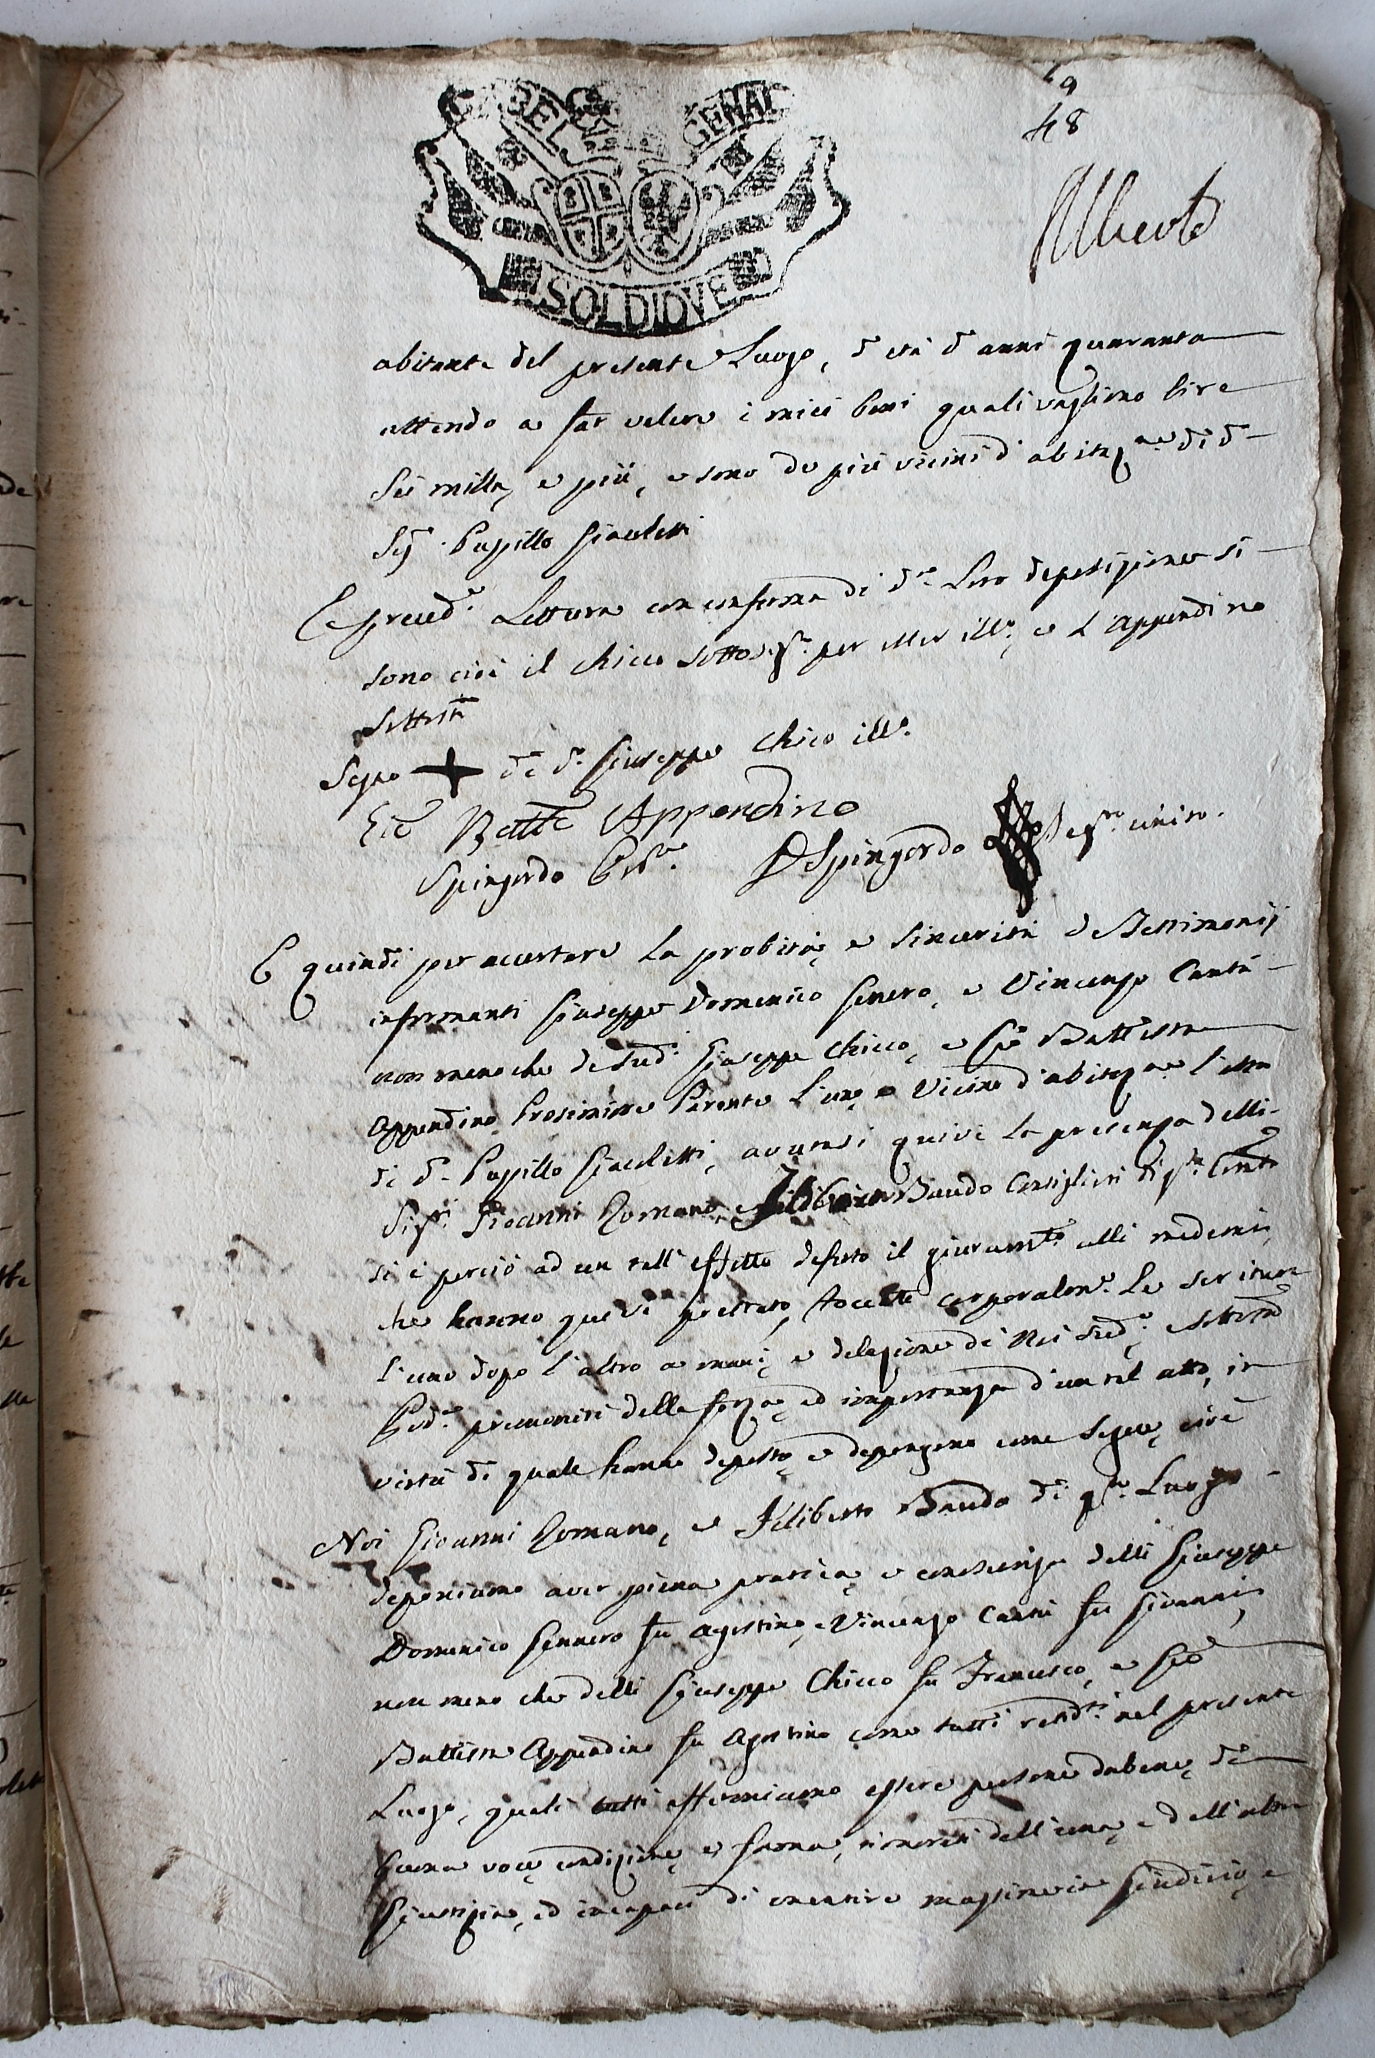 GABEL GENAL
SOLDI DVE
19
48
Alberto
abitante del presente Luogo, d'età d'anni quaranta
attendo a far valere i miei beni quali vagliono lire
Sei milla, e più, e sono de più vicini d'abitaz.ne di d.
Sig.r Pupillo Giauletti
E preced.e Lettura con conferma di d.e Loro deposizione si
sono cioè il Chicco sottoseg.to per esser ill.o, e l'Appendino
sottos.to
Segno + di d.o Giuseppe Chico ill.o
Gio Batta Appendino
Spingardo Pod.a DSpingardo Seg.ro unito.
E quindi per accertare la probità, e sincerità de Testimonij
informanti Giuseppe Domenico Genero, e Vincenzo Cantù
non meno che de sud.i Giuseppe Chicco, e Gio Battista
Appendino Prossimiore Parente l'uno, e Vicino d'abitaz.ne l'altro
di d.o Pupillo Giauletti, avutasi quivi la presenza delli
Sig.ri Gioanni Romano, e Filiberto Baudo Consiglieri di q.ta Com.tà
si è perciò ad un tall'effetto deferto il giuram.to alli medemi,
che hanno quivi prestato, toccate corporalm.e le scritture
l'uno dopo l'altro a mani, e delazione di Noi sud.o, e sottos.to
Pod.a premoniti della forza, ed importanza d'un tal atto, in
virtù di quale hanno deposto, e depongono come segue, cioè
Noi Gioanni Romano, e Filiberto Baudo di q.to Luogo
deponiamo aver piena pratica, e conoscenza delli Giuseppe
Domenico Gennero fu Agostino, e Vincenzo Cantù fu Giovanni,
non meno che delli Giuseppe Chicco fu Francesco, e Gio
Battista Appendino fu Agostino come tutti resid.ti nel presente
Luogo, quali tutti affermiamo essere persone dabene, di
buona voce, condizione, e fama, timorati dell'una, e dell'altra
Giustizia, ed incapaci di mentire massime in Giudicio, e